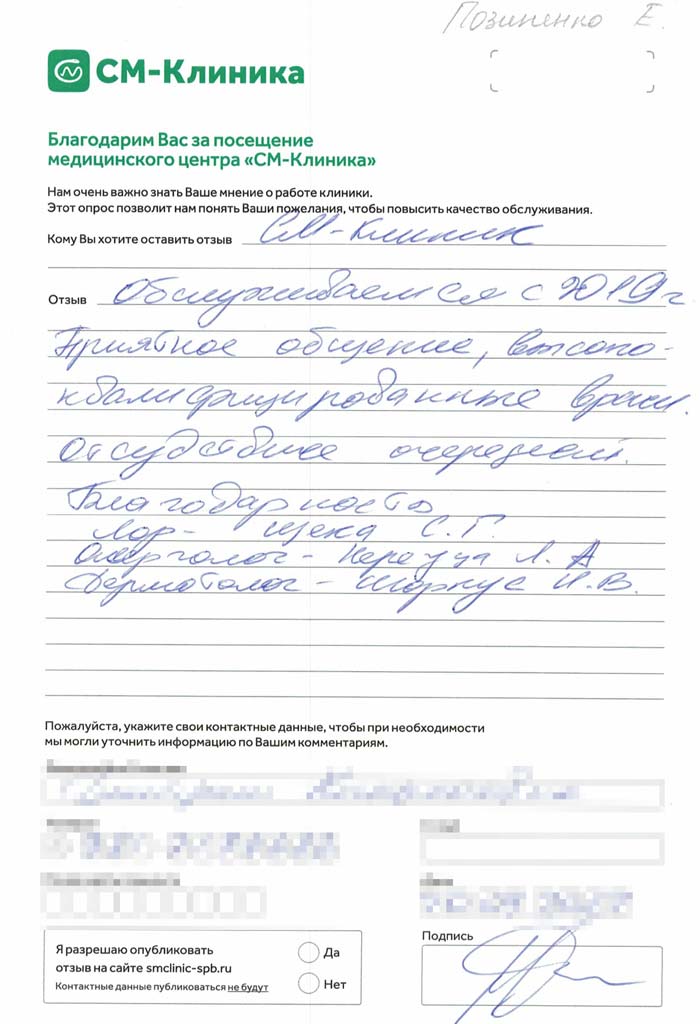 Позиненко Е.
СМ-Клиника
Благодарим Вас за посещение
медицинского центра «СМ-Клиника»
Нам очень важно знать Ваше мнение о работе клиники.
Этот опрос позволит нам понять Ваши пожелания, чтобы повысить качество обслуживания.
Кому Вы хотите оставить отзыв СМ-Клиник
Отзыв Обслуживаемся с 2019г
Приятное общение, высоко-
квалифицированные врачи.
Отсудствие очередей.
Благодарность
Лор- Щека С.Г.
-
Дерматолог - И.В.
Пожалуйста, укажите свои контактные данные, чтобы при необходимости
мы могли уточнить информацию по Вашим комментариям.
Я разрешаю опубликовать
отзыв на сайте smclinic-spb.ru
Контактные данные публиковаться не будут
Да
Нет
Подпись